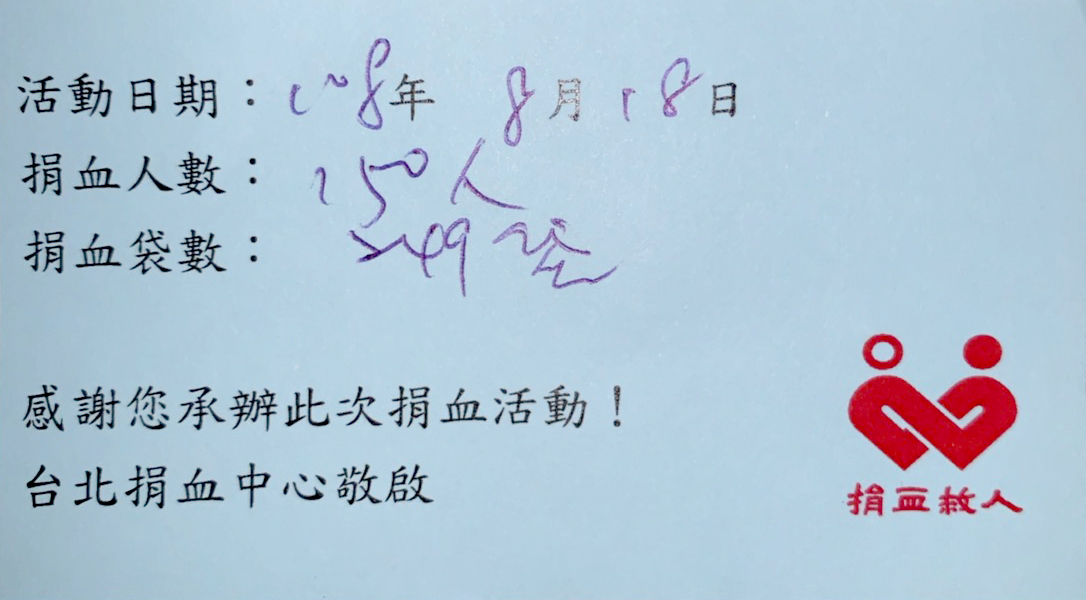 活動日期：108年 8月18日
捐血人數：150人
捐血袋數：249袋
感謝您承辦此次捐血活動！
台北捐血中心敬啟
捐血救人